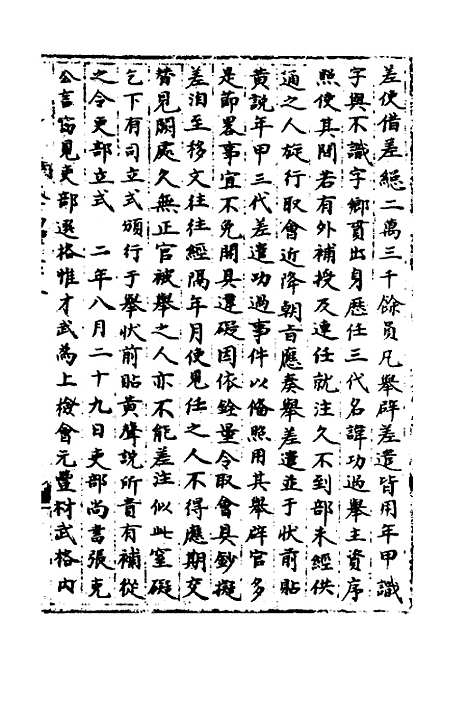 差使借差總二萬三千餘員凡舉辟差遣皆用年甲識
字與不識字鄉貫出身歷任三代名諱功過舉主資序
照使其間若有外補授及連任就注久不到部未經供
通之人旋行取會近降朝旨應奏舉差遣並于狀前貼
黃說年甲三代差遣功過事件以備照用其舉辟官多
是節畧事宜不免開具遲礙因依銓量令取會具鈔擬
差洎至移文往往經隔年月使見任之人不得應期交
替見闕處久無正官被舉之人亦不能差注似此窒礙
乞下有司立式頒行于舉狀前貼黃聲說所貴有補從
之令吏部立式　二年八月二十九日吏部尚書張克
公言竊見吏部選格惟才武為上檢會元豐材武格内